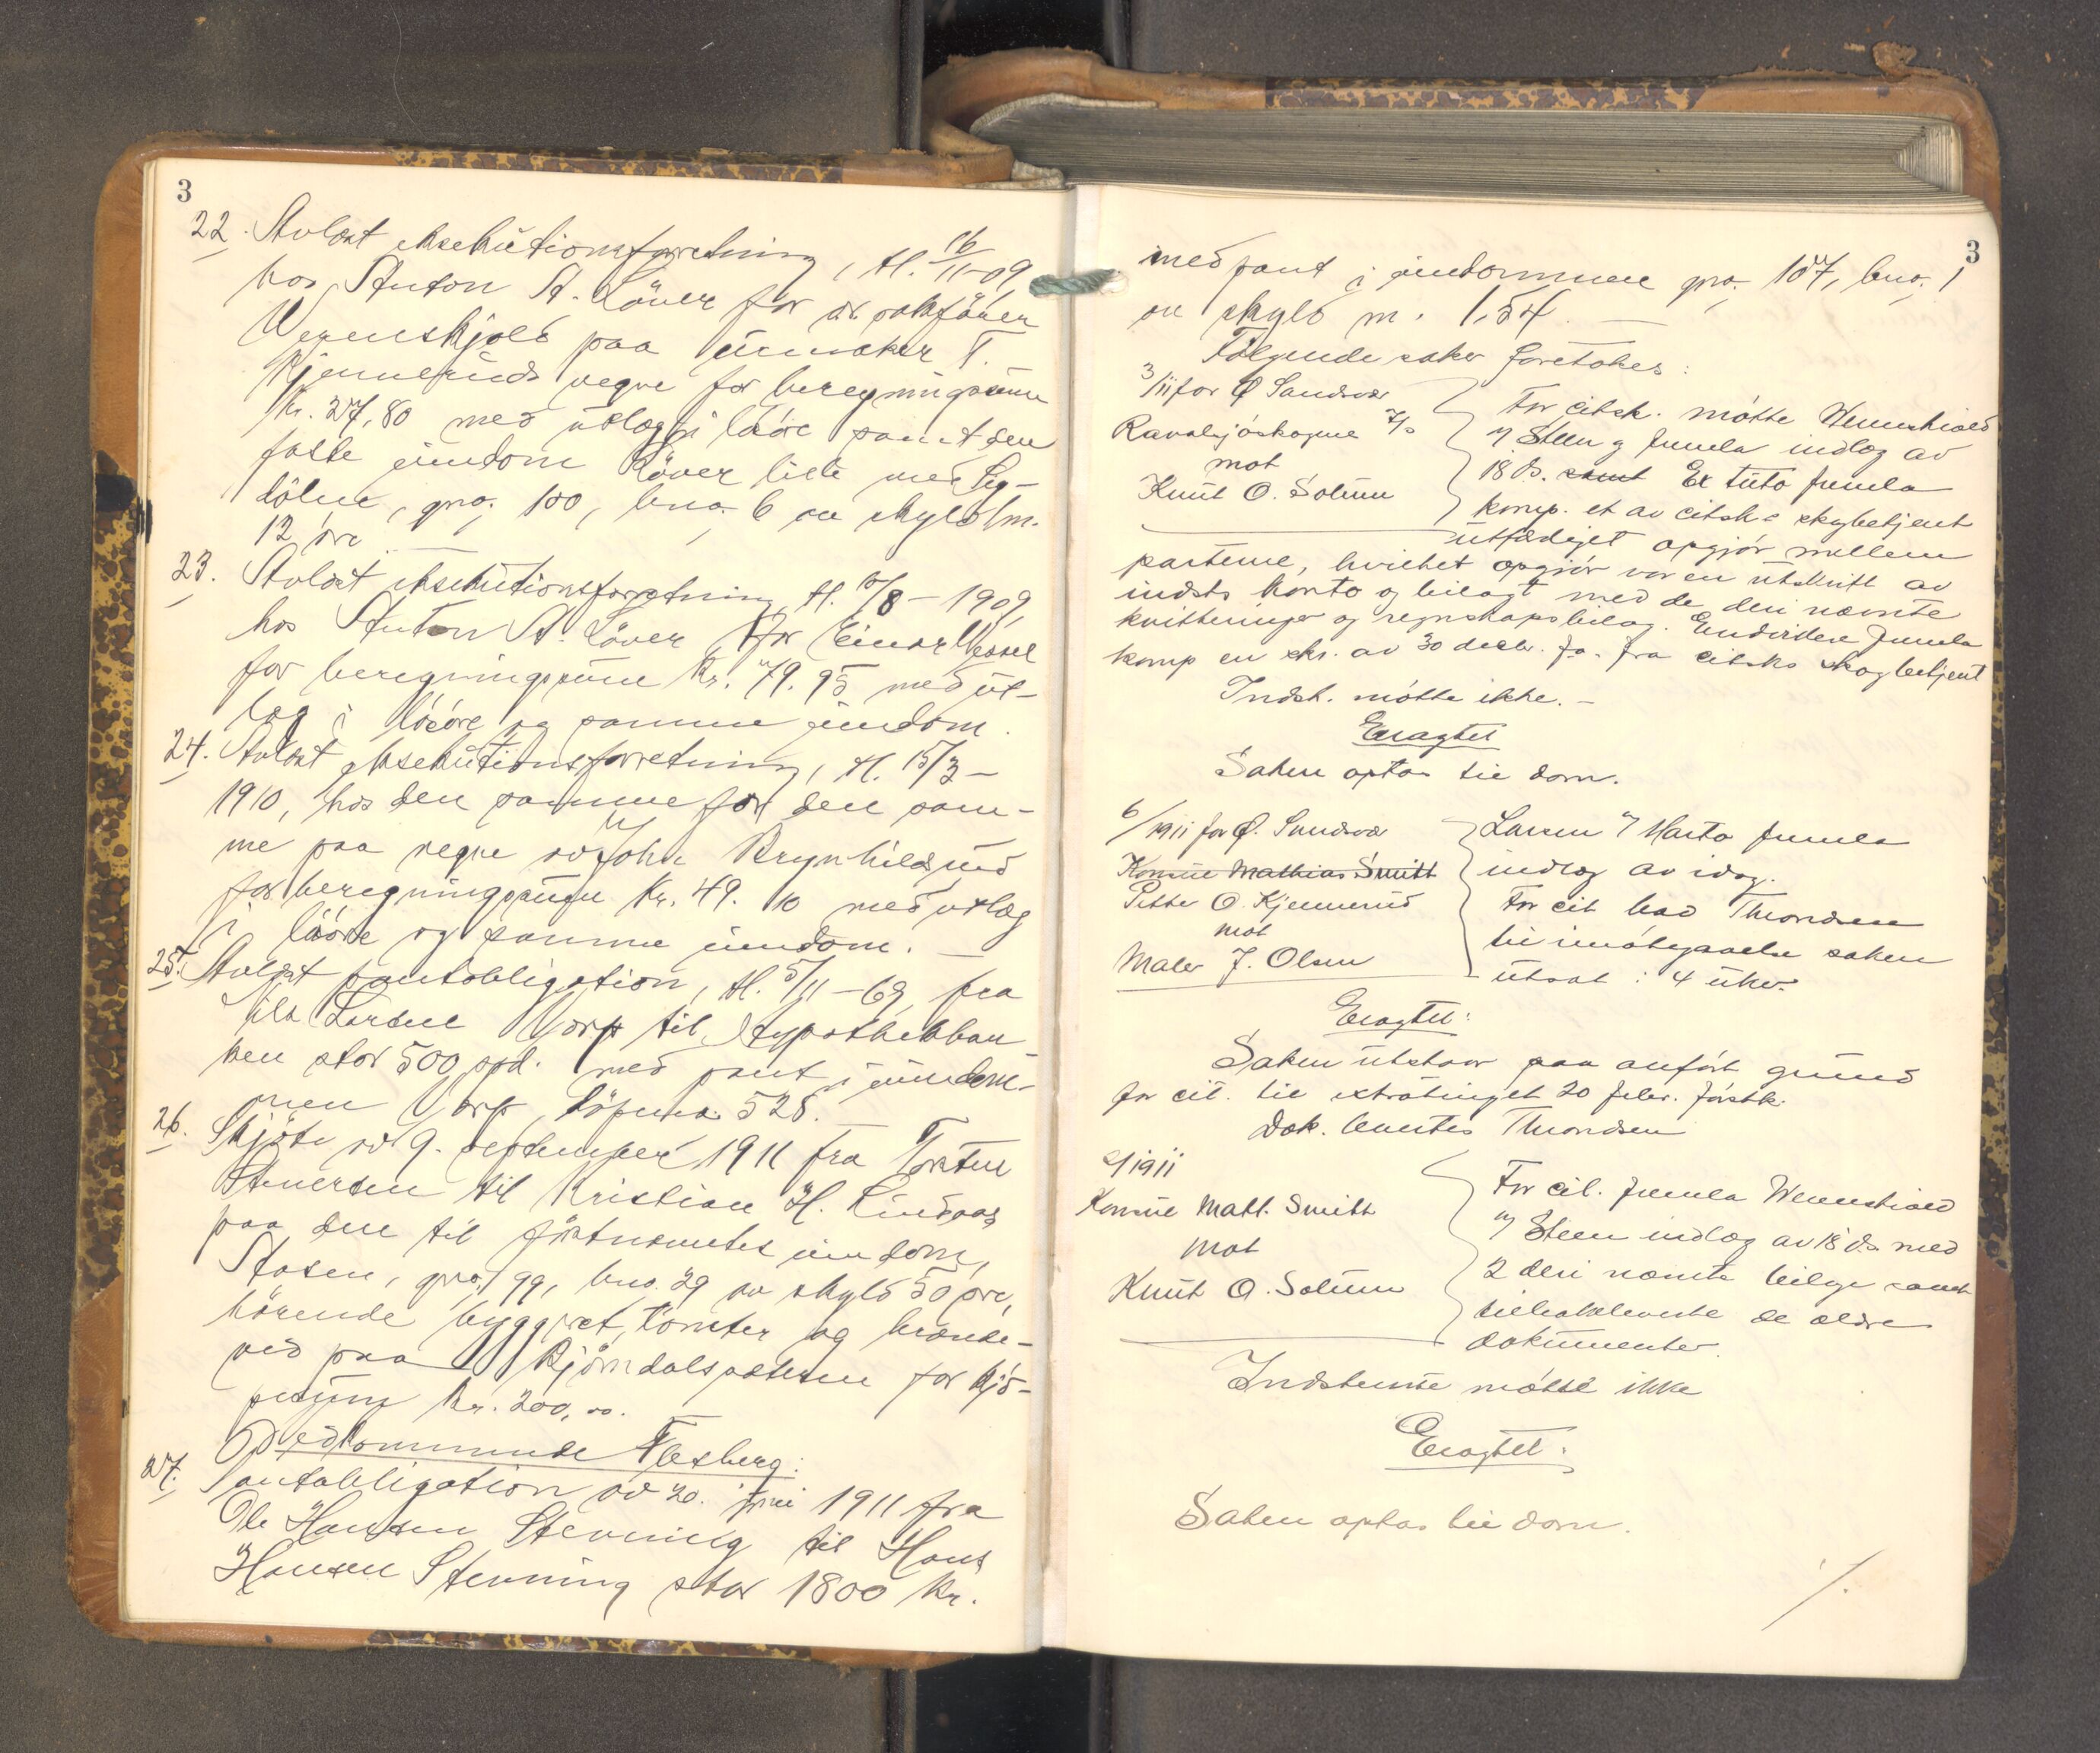 3
22. Avlæst eksekutionsforretning, tl. 16/11-09,
hos Anton A. Löver for o.r. sakförer
Werenskjold paa urmaker T.
Kjennerüds vegne for beregningssum
Kr. 27,80 med utlæg i lösöre samt den
faste eiendom Löver lille med Seg-
dölene, gno. 100, bno. 6 av skyld m.
12 öre
23. Avlæst eksekutionsforretning, tl. 10/8-1909,
hos Anton A. Löver, for Einar Wessel
for beregningssum Kr. 79.95 med ut-
læg i lösöre og samme eiendom.
24. Avlæst eksekutionsforretning, tl. 15/3-
1910, hos den samme for den sam-
me paa vegne av John Brynhildsrud
for beregningssum Kr. 49.10 med utlæg
i lösöre og samme eiendom.
25. Avlæst pantobligation, tl. 5/11-69, fra
Larsen Vorp til Hypothekban-
ken stor 500 spd. med pant i eiendom-
men Vorp, löpeno. 528.
26. Skjöte av 9. september 1911 fra Torsten
Stenersen til Kristian H. Lindaas
paa den til förstnævntes eiendom,
Aasen, gno. 99, bno. 29 av skyld 50 öre,
hörende byggeret, tömter og brænde-
ved paa Bjørndalsæteren for kjö-
pesum Kr. 200,00.
Vedkommende Flesberg:
27. Pantobligation av 20. juni 1911 fra
Ole Hansen Stevning til Hans
Hansen Stevning stor 1800 Kr.
3
med pant i eiendommen gno. 107, bno. 1
av skyld m. 1,54.
Følgende saker foretokes:
3/1911 for O. Sandvær
Ravalsjöskogene A/s
mot
Knut O. Solum
For citsk. mötte Werenskiold
v/ Steen g fremla indlæg av
18 ds. samt Ex tuto fremla
komp. et av citsk-s skogbetjent
utfærdiget opgjör mellem
parterne, hvilket opgjör var en utskrift av
indsts konto og bilagt med de deri nævnte
kvitteringer og regnskapsbilag. Endvidere fremla
komp en skr. av 30 decbr. f.a. fra citsks skogbetjent
Indst. mötte ikke. –
Eragtet
Saken optas til dom.
6/1911 for O. Sandvær
Konsul Mathias Smitt
Petter O. Kjennerud
mot
Maler J. Olsen
Larsen v/ Marto fremla
indlæg av idag.
For cit bad Throndsen
til imötegaaelse saken
utsat i 4 uker.
Eragtet:
Saken utstaar paa anfört grund
for cit. til extratinget 20 febr. förstk.
Dok. levertes Throndsen
/1911
Konsul Math. Smitt
mot
Knut O. Solum
For cit. fremla Werenskiold
v/ Steen indlæg av 18 ds. med
2 deri nævnte bilage samt
tilbakeleverte de ældre
dokumenter.
Indstevnte mötte ikke
Eragtet:
Saken optas til dom.